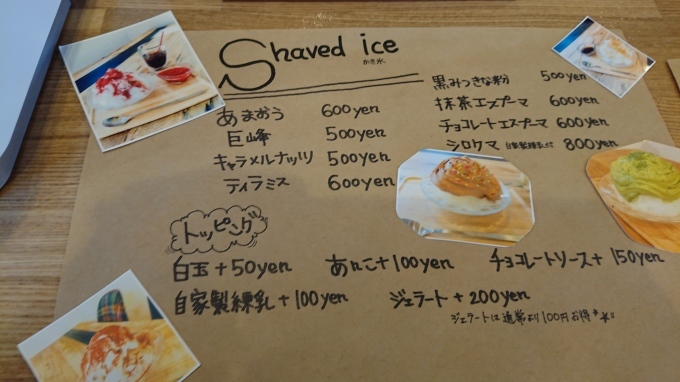 Shaved ice
かき氷
あまおう 600yen
巨峰 500yen
キャラメルナッツ 500yen
ティラミス 600yen
黒みつきな粉 500yen
抹茶エスプーマ 600yen
チョコレートエスプーマ 600yen
シロクマ 自家製練乳付 800yen
トッピング
白玉+50yen あんこ+100yen チョコレートソース+150yen
自家製練乳+100yen ジェラート+200yen
ジェラートは通常より100円お得